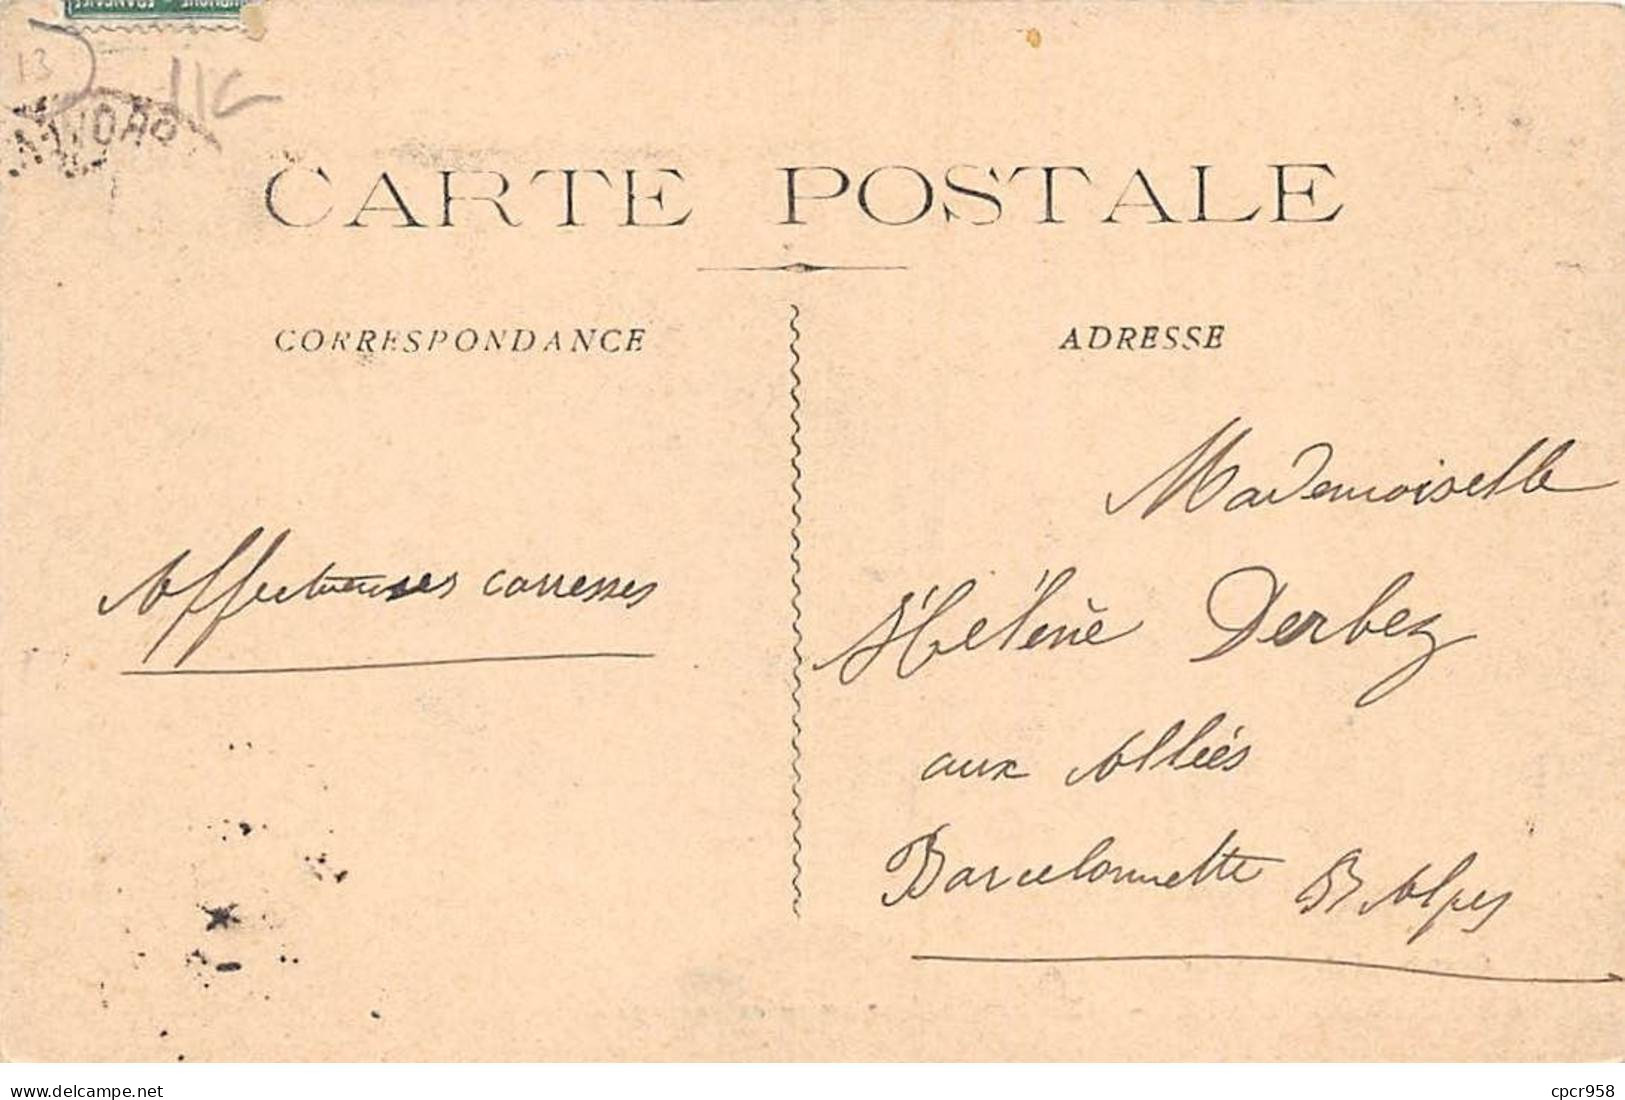 13
11c
CARTE POSTALE
CORRESPONDANCE
ADRESSE
Mademoiselle
Affectueuses carresses
Hélène Derbez
aux Alliés
Barcelonnette Bs Alpes
delcampe.net
cpcr958